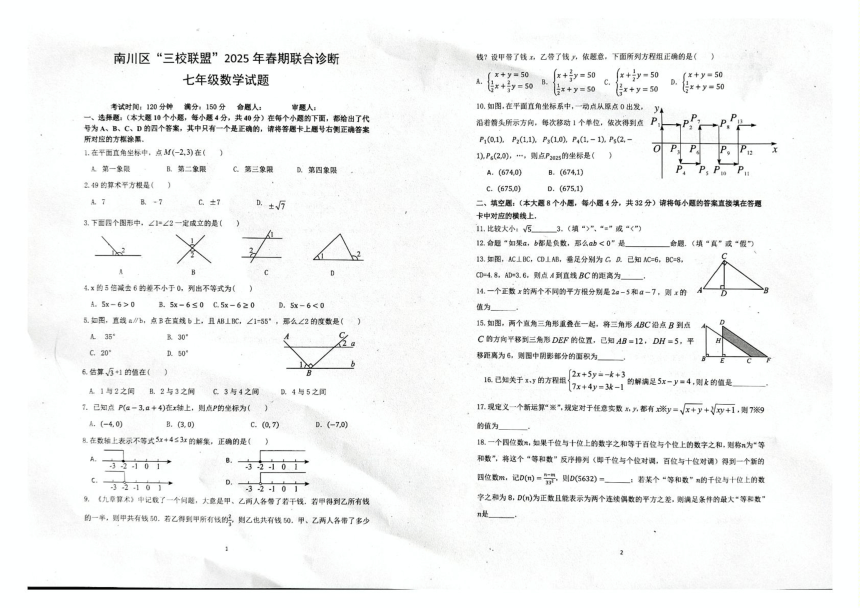 南川区“三校联盟”2025 年春期联合诊断
七年级数学试题
考试时间：120 分钟 满分：150 分 命题人： 审题人：
一、选择题：（本大题 10 个小题，每小题 4 分，共 40 分）在每个小题的下面，都给出了代
号为 A、B、C、D 的四个答案，其中只有一个是正确的，请将答题卡上题号右侧正确答案
所对应的方框涂黑．
1.在平面直角坐标中，点 M(−2,3)在（ ）
A. 第一象限 B. 第二象限 C. 第三象限 D. 第四象限
2.49 的算术平方根是（ ）
A. 7 B. -7 C. ±7 D. ±√7
3.下面四个图形中，∠1=∠2 一定成立的是（ ）
1 2
1 2
1 2
1 2
A B C D
4.x 的 5 倍减去 6 的差不小于 0，列出不等式为（ ）
A．5x − 6 > 0 B．5x − 6 ≤ 0 C．5x − 6 ≥ 0 D．5x − 6 < 0
5.如图，直线 a∥b，点 B 在直线 b 上，且 AB⊥BC，∠1=55°，那么∠2 的度数是（ ）
A. 35° B. 30°
C. 20° D. 50°
A C 2 a
1 B b
6.估算√3 +1 的值在（ ）
A. 1 与 2 之间 B. 2 与 3 之间 C. 3 与 4 之间 D. 4 与 5 之间
7. 已知点 P(a − 3, a + 4)在x轴上，则点P的坐标为（ ）
A．(−4, 0) B．(3, 0) C．(0, 7) D．(−7,0)
8.在数轴上表示不等式 5x+4≤3x 的解集，正确的是（ ）
A. -3 -2 -1 0 1 B. -3 -2 -1 0 1
C. -3 -2 -1 0 1 D. -3 -2 -1 0 1
9. 《九章算术》中记载了一个问题，大意是甲、乙两人各带了若干钱．若甲得到乙所有钱
的一半，则甲共有钱 50．若乙得到甲所有钱的2/3，则乙也共有钱 50．甲、乙两人各带了多少
1
钱？设甲带了钱 x，乙带了钱 y，依题意，下面所列方程组正确的是（ ）
10.如图,在平面直角坐标系中,一动点从原点 O 出发,
沿着箭头所示方向，每次移动 1 个单位，依次得到点
P₁(0,1)，P₂(1,1)，P₃(1,0)，P₄(1, − 1), P₅(2, −
1), P₆(2,0)，⋯，则点P₂₀₂₅的坐标是（ ）
A．(674,0) B．(674,1)
C．(675,0) D．(675,1)
y P₁ P₂ P₇ P₈ P₁₃
O P₃ P₆ P₉ P₁₂ x
P₄ P₅ P₁₀ P₁₁
二、填空题：（本大题 8 个小题，每小题 4 分，共 32 分）请将每小题的答案直接填在答题
卡中对应的横线上．
11.比较大小：√5______3.（填“>”、“=”或“<”）
12.命题“如果a，b都是负数，那么ab < 0”是________命题．（填“真”或“假”）
13.如图，AC⊥BC，CD⊥AB，垂足分别为 C，D．已知 AC=6，BC=8，
CD=4.8，AD=3.6，则点 A 到直线 BC 的距离为______．
C
A D B
14.一个正数 x 的两个不同的平方根分别是 2a − 5 和 a − 7，则 x 的
值为______．
15.如图，两个直角三角形重叠在一起，将三角形 ABC 沿点 B 到点
C 的方向平移到三角形 DEF 的位置，已知 AB = 12，DH = 5，平
移距离为 6，则图中阴影部分的面积为______．
A D
H
B E C F
16.已知关于 x,y 的方程组{2x + 5y = −k + 3 7x + 4y = 3k − 1 的解满足5x − y = 4，则 k 的值是________．
17.现定义一个新运算“※”,规定对于任意实数 x, y, 都有 x※y = √x + y + ∛xy + 1，则 7※9
的值为______．
18.一个四位数n，如果千位与十位上的数字之和等于百位与个位上的数字之和，则称n为“等
和数”，将这个“等和数”反序排列（即千位与个位对调，百位与十位对调）得到一个新的
四位数m，记D(n) = (n−m)/33，则D(5632) =______；若某个“等和数”n的千位与十位上的数
字之和为 8，D(n)为正数且能表示为两个连续偶数的平方之差，则满足条件的最大“等和数”
n是______．
2